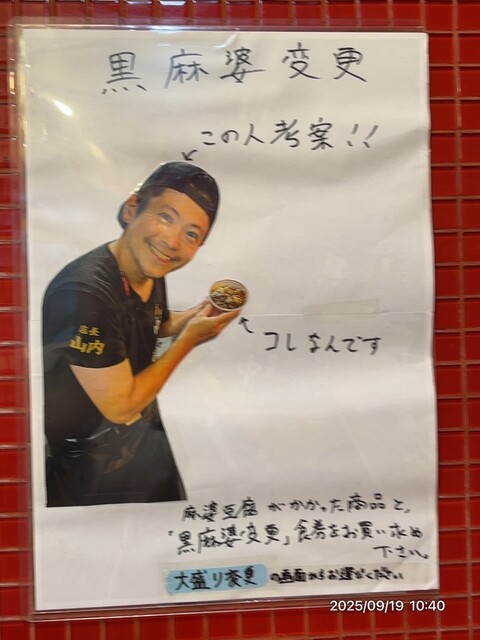 黒麻婆変更
この人考案!!
店長
山内
コレなんです
麻婆豆腐がかかった商品と、
「黒麻婆変更」食券をお買い求め
下さい。
大盛り変更の画面からお選びください
2025/09/19 10:40